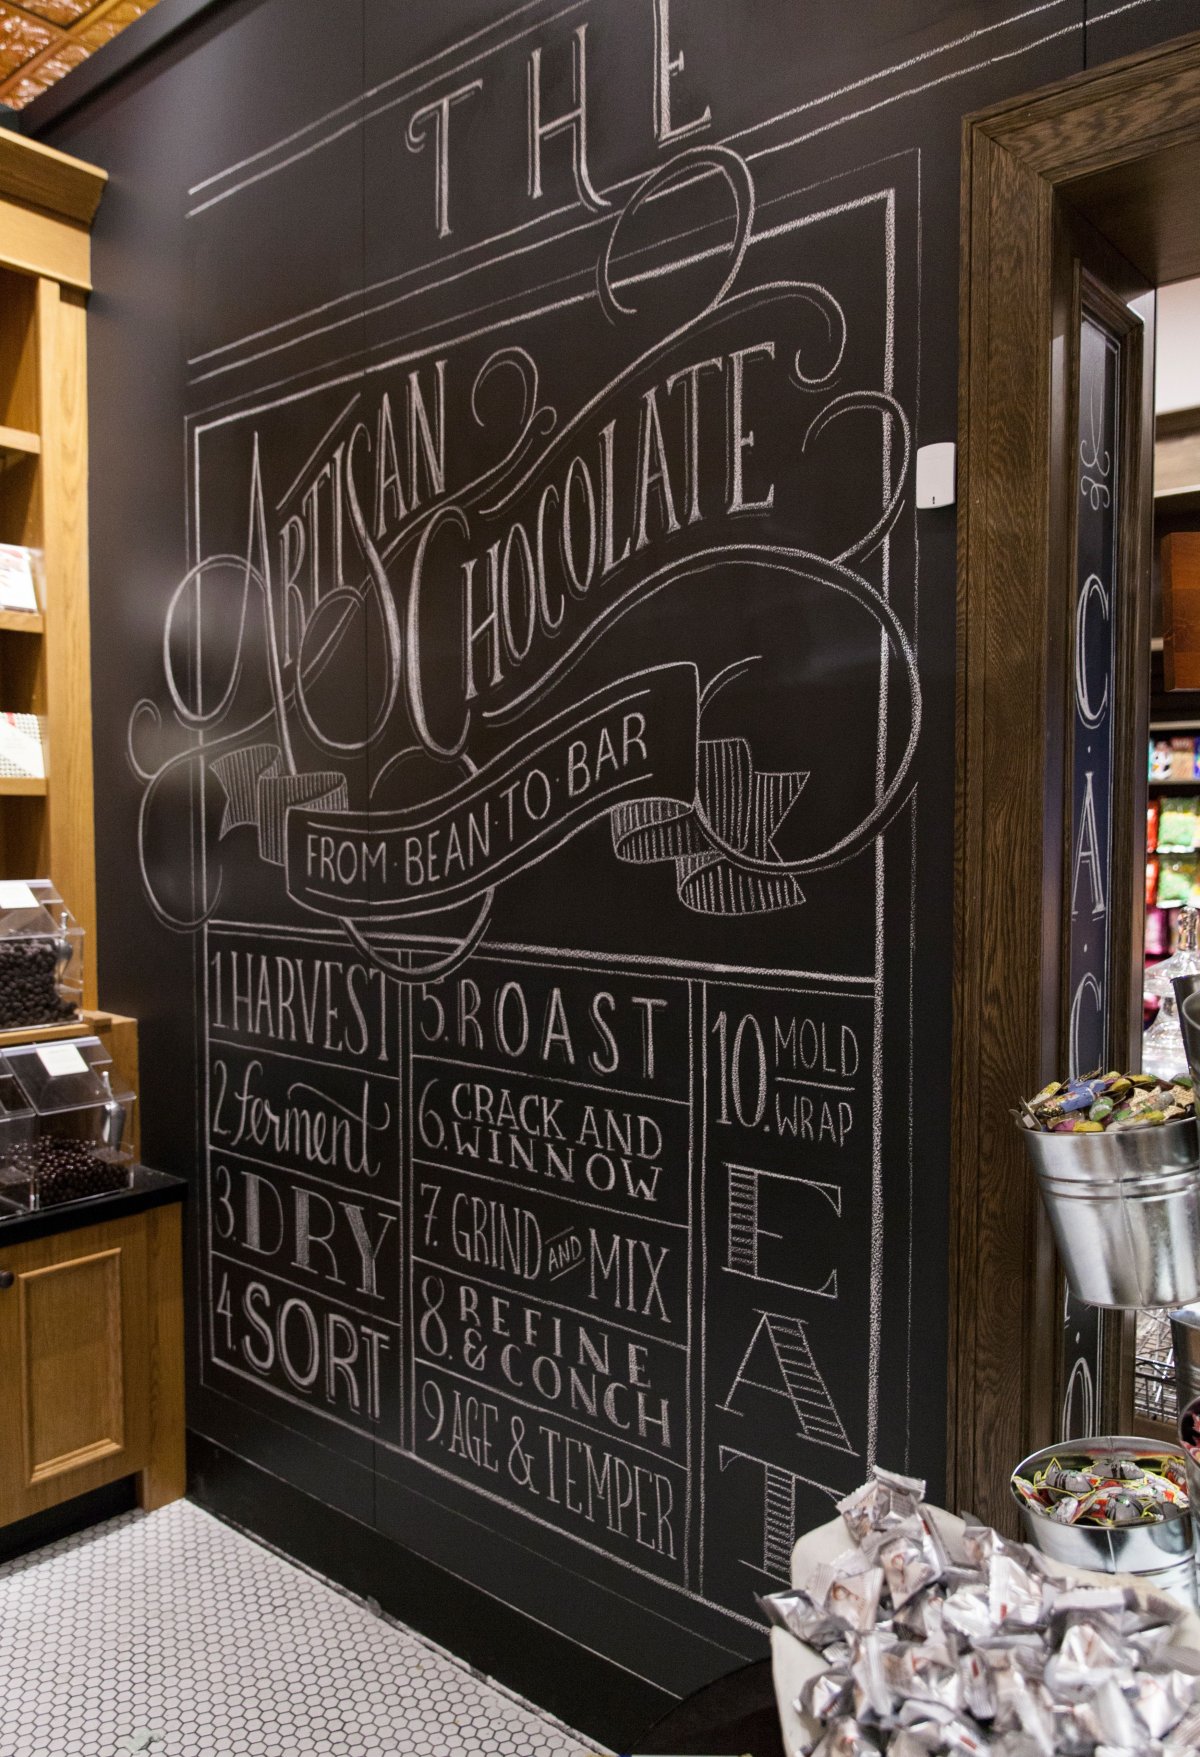 THE
ARTISAN
CHOCOLATE
FROM·BEAN·TO·BAR
1 HARVEST
2 ferment
3. DRY
4. SORT
5. ROAST
6. CRACK AND
WINNOW
7. GRIND AND MIX
8. REFINE
& CONCH
9. AGE & TEMPER
10. MOLD
WRAP
EAT
C·A·C